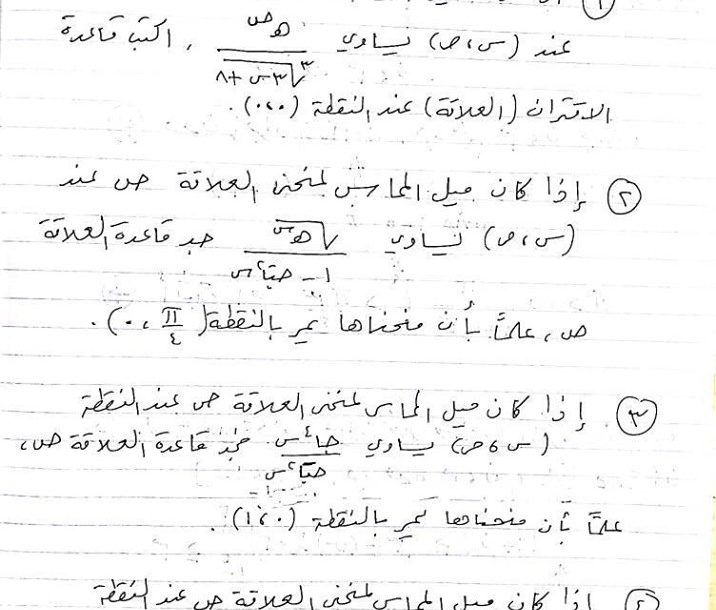 ①
عند (س، ص) يساوي هـ^ص / ∛(٣س + ٨) ، اكتب قاعدة
الاقتران (العلاقة) عند النقطة (٠،٠).
② إذا كان ميل المماس لمنحنى العلاقة ص عند
(س، ص) يساوي √هـ^س / ١ - جتا²س جد قاعدة العلاقة
ص، علمًا بأن منحناها يمر بالنقطة (π/٤ ، ٠).
③ إذا كان ميل المماس لمنحنى العلاقة ص عند النقطة
(س، ص) يساوي / جتا²س فجد قاعدة العلاقة ص،
علمًا بأن منحناها يمر بالنقطة (٠، ١).
④ إذا كان ميل المماس لمنحنى العلاقة ص عند النقطة